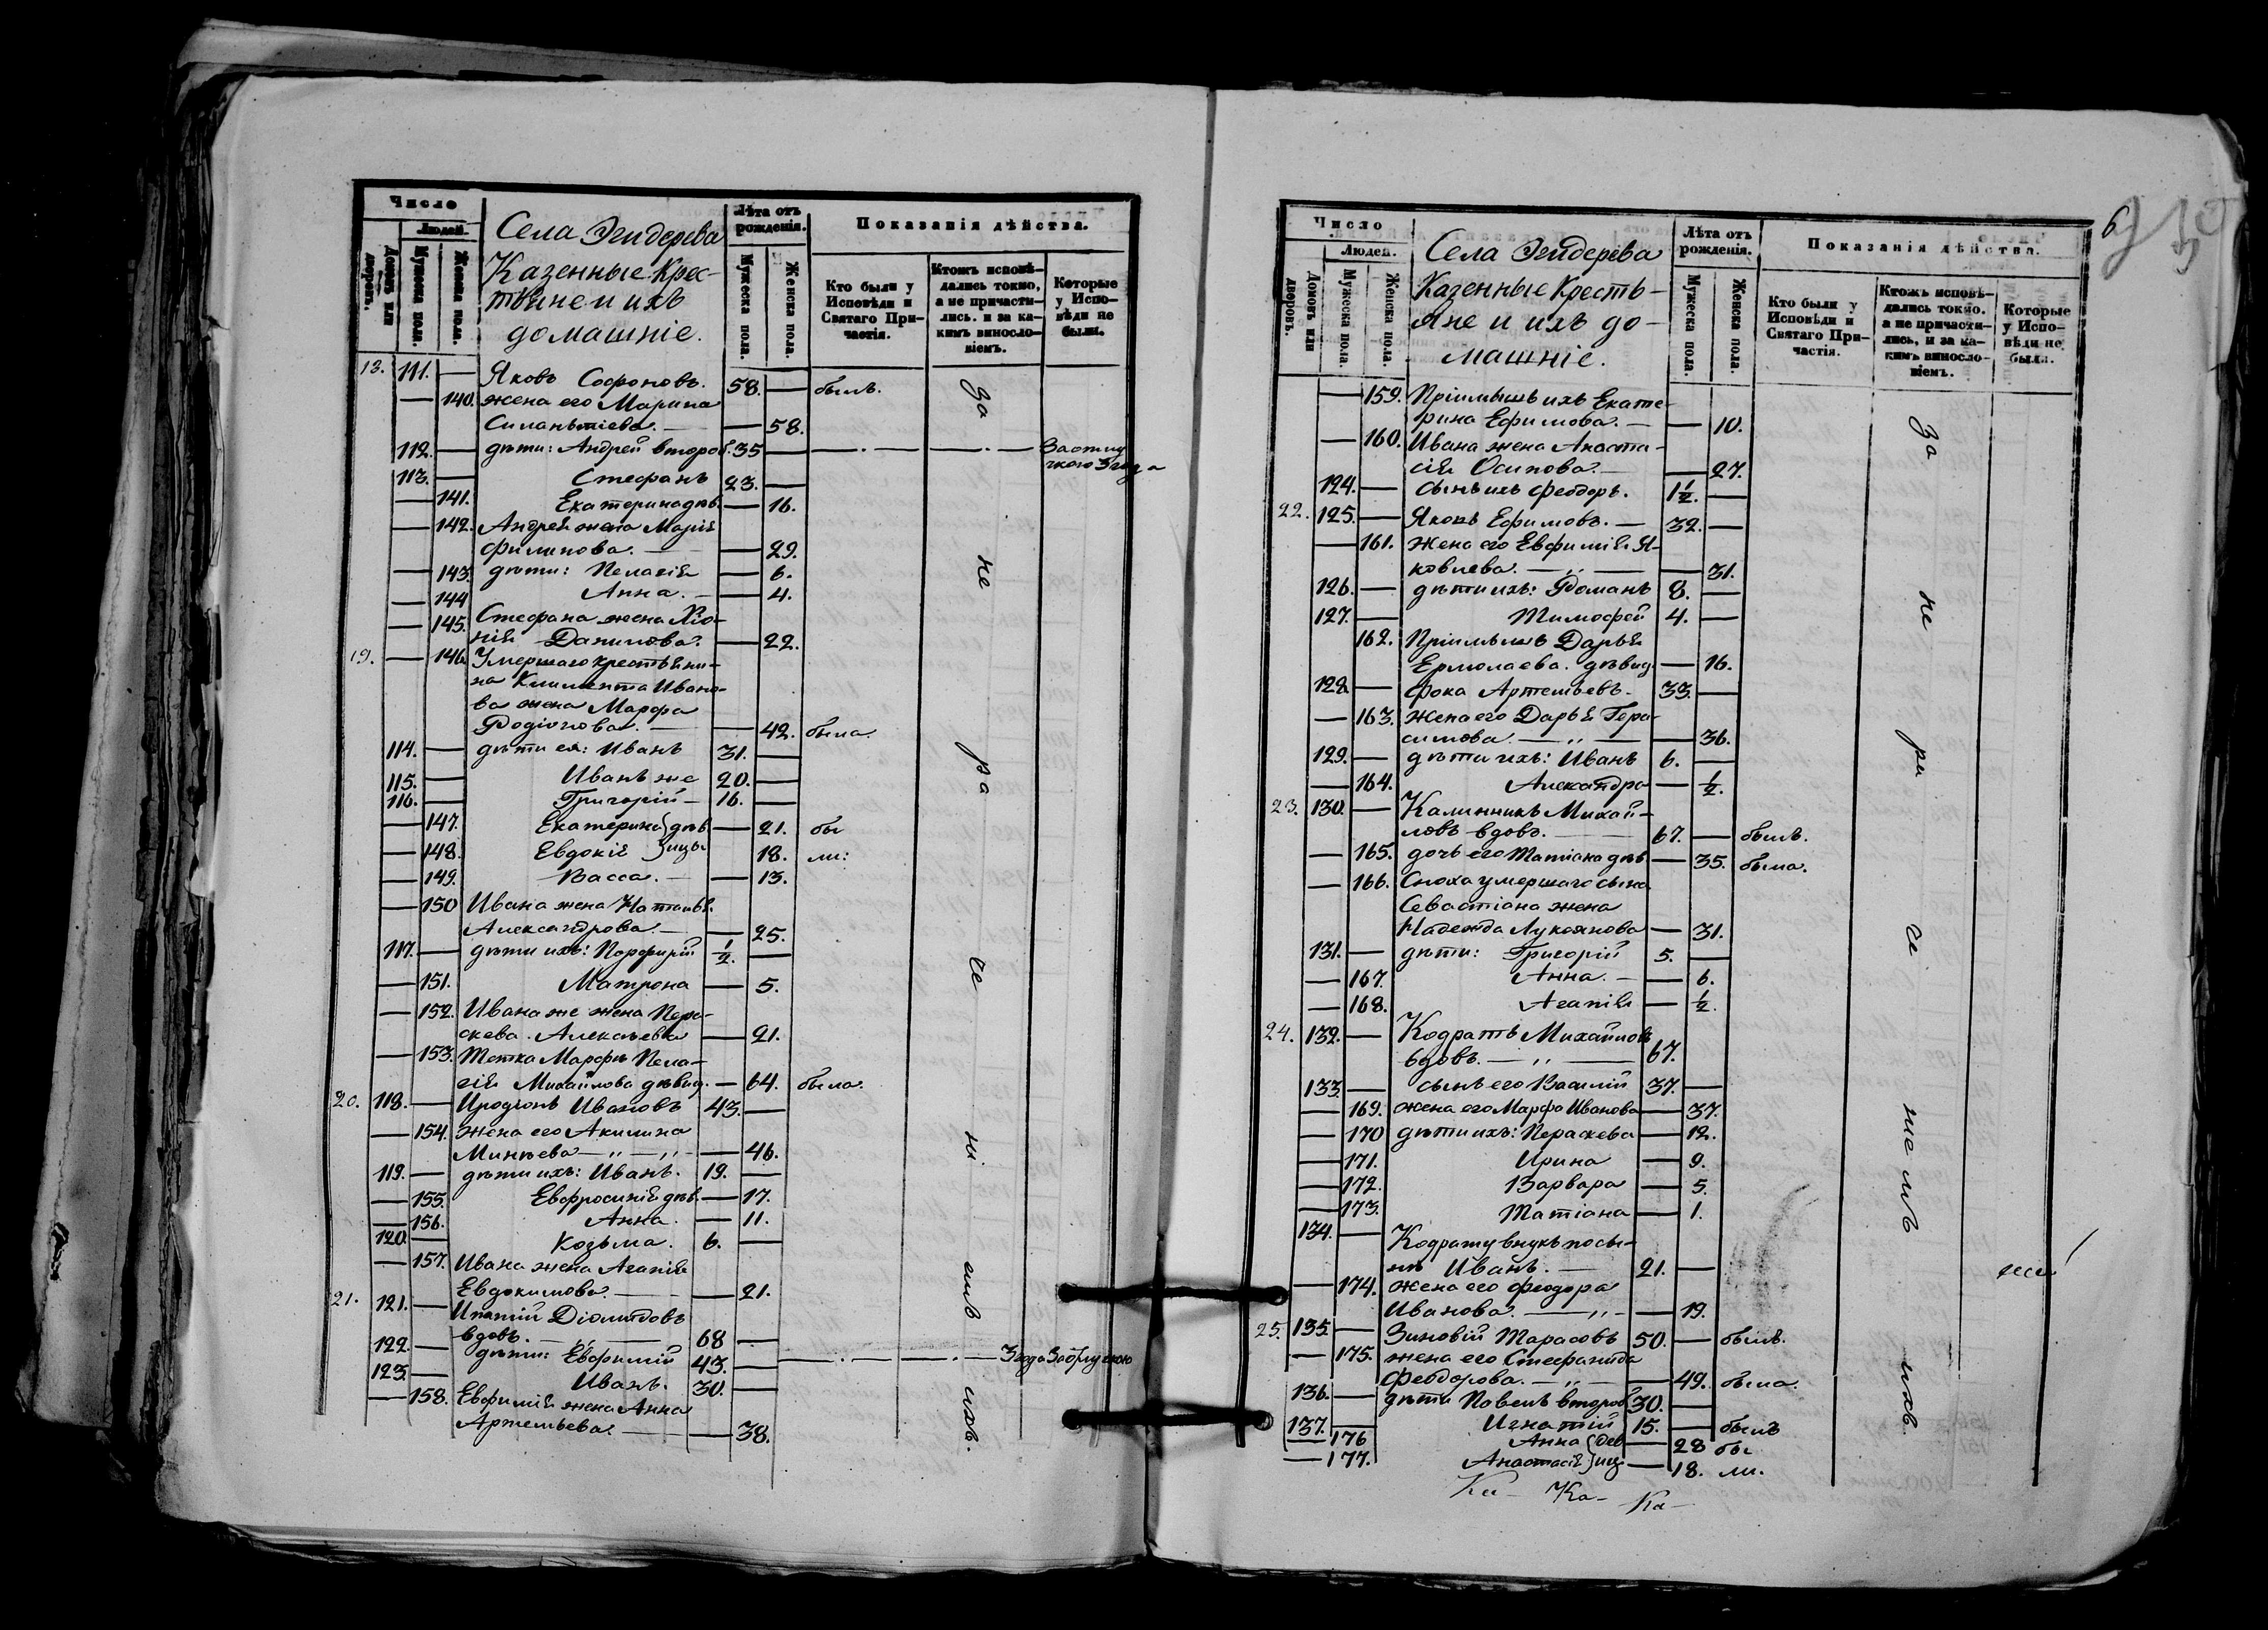 Число
Людей.
Домовъ или дворовъ.
Мужеска пола.
Женска пола.
Села Эгидерева
Казенные Крес-
тьяне и ихъ
домашніе.
Лѣта отъ рожденія.
Мужеска пола.
Женска пола.
Показанія дѣйства.
Кто были у Исповѣди и Святаго Причастія.
Ктожъ исповѣдались токмо, а не причастились. и за какимъ винословіемъ.
Которые у Исповѣди не были.
18. 111. — Яковъ Софроновъ. 58. — былъ.
— 140. жена его Марина
Силантіева. — — 58.
112. — дѣти: Андрей второй. 35 — За отлучкою 3 года
113. — Стефанъ 23. —
— 141. Екатерина дѣв. — 16.
— 142. Андрея жена Марія
Филипова. — — 29.
— 143. дѣти: Пелагія — 6.
— 144 Анна. — — 4.
— 145. Стефана жена Хіо-
нія Данилова. — 22.
19. — 146. Умершаго крестьяни-
на Климента Ивано-
ва жена Марфа
Родіонова. — — 42. была.
114. — дѣти ея: Иванъ 31. —
115. — Иванъ же 20. —
116. — Григорій — 16. —
— 147. Екатерина } дѣв — 21. бы
— 148. Евдокія } ицы 18. ли:
— 149. Васса. — — 13.
— 150 Ивана жена Наталья
Александрова. — — 25.
117. — дѣти ихъ: Порфирій 1/2. —
— 151. Матрона — 5.
— 152. Ивана же жена Пара-
скева. Алексѣева — 21.
— 153. Тетка Марфы Пела-
гія Михайлова дѣвиц. — 64. была.
20. 118. — Иродіонъ Ивановъ 43. —
— 154. жена его Акилина
Минѣева — „ — „ — — 46.
119. — дѣти ихъ: Иванъ. 19. —
— 155. Евфросинія дѣв. — 17.
— 156. Анна. — 11.
120. — Козьма. 6. —
— 157. Ивана жена Агапія
Евдокимова. — — 21.
21. 121. — Ипатій Діомидовъ
вдовъ. — „ — 68 —
122. — дѣти: Евфимій 43. — 3 года За отлучкою
123. — Иванъ. 30. —
— 158. Евфимія жена Анна
Артемьева. — — 38.
За не ра че ні емъ ихъ.
6
Число
Людей.
Домовъ или дворовъ.
Мужеска пола.
Женска пола.
Села Эгидерева
Казенные Кресть-
яне и ихъ до-
машніе.
Лѣта отъ рожденія.
Мужеска пола.
Женска пола.
Показанія дѣйства.
Кто были у Исповѣди и Святаго Причастія.
Ктожъ исповѣдались токмо. а не причастились, и за какимъ винословіемъ.
Которые у Исповѣди не были.
— 159. Пріимышъ ихъ Екате-
рина Ефимова. — — 10.
— 160. Ивана жена Анаста-
сія Осипова. — — 27.
124. — Сынъ ихъ Феодоръ. 1 1/2. —
22. 125. — Яковъ Ефимовъ. — 32. —
— 161. Жена его Евфимія Я-
ковлева. — „ — — 31.
126. — дѣти ихъ: Романъ 8. —
127. — Тимофей 4. —
162. Пріимышъ Дарья
Ермолаева. дѣвиц. — 16.
128. — Фока Артемьевъ. 33. —
— 163. Жена его Дарья Гера-
симова. — „ — — 36.
129. — дѣти ихъ: Иванъ 6. —
— 164. Александра — 1/2.
23. 130. — Калинникъ Михай-
ловъ вдовъ. — 67. — былъ.
— 165. дочь его Татіана дѣв. — 35. была.
— 166. Сноха умершаго сына
Севастіана жена
Надежда Лукоянова — 31.
131. — дѣти: Григорій 5. —
— 167. Анна. — — 6.
— 168. Агапія — 1/2.
24. 132. — Кодратъ Михайловъ
вдовъ. — „ — 67.
133. — сынъ его Василій 37. —
— 169. жена его Марфа Иванова — 37.
— 170 дѣти ихъ: Параскева — 12.
— 171. Ирина — 9.
— 172. Варвара — 5.
— 173. Татіана — 1.
134. — Кодрату внукъ по сы-
нѣ Иванъ. — 21. —
— 174. жена его Феодора
Иванова. — „ — — 19.
25. 135. — Зиновій Тарасовъ 50. — былъ.
— 175. жена его Стефанида
Феодорова. — „ — — 49. была.
136. — дѣти Павелъ второй 30. —
137. — Игнатій 15. — былъ
— 176 Анна } дев — 28 бы
— 177. Анастасія } иц. — 18. ли.
За не ра че ніемъ ихъ.
Ка- Ка- Ка-